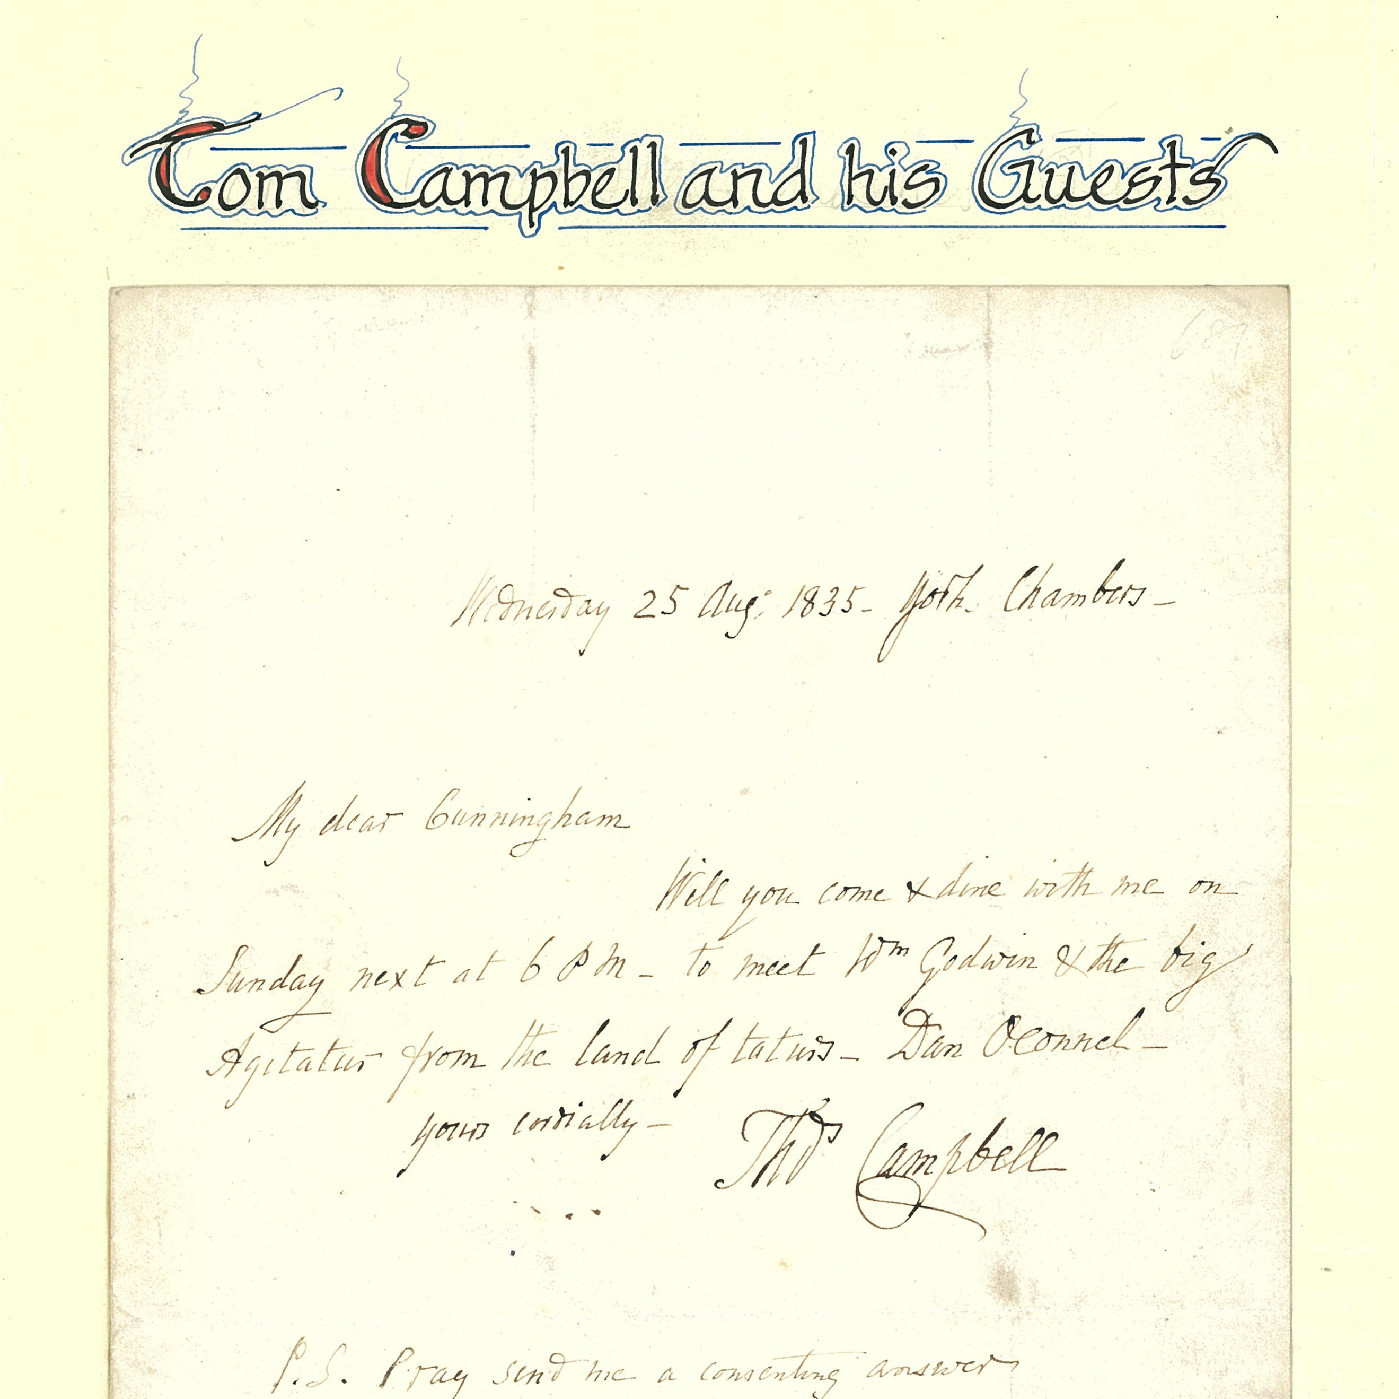 Tom Campbell and his Guests
Wednesday 25 Aug: 1835 - York Chambers -
My dear Cunningham
Will you come & dine with me on
Sunday next at 6 PM - to meet Wm Godwin & the big
Agitatur from the land of taturs - Dan OConnel -
yours cordially - Thos Campbell
P.S. Pray send me a consenting answer